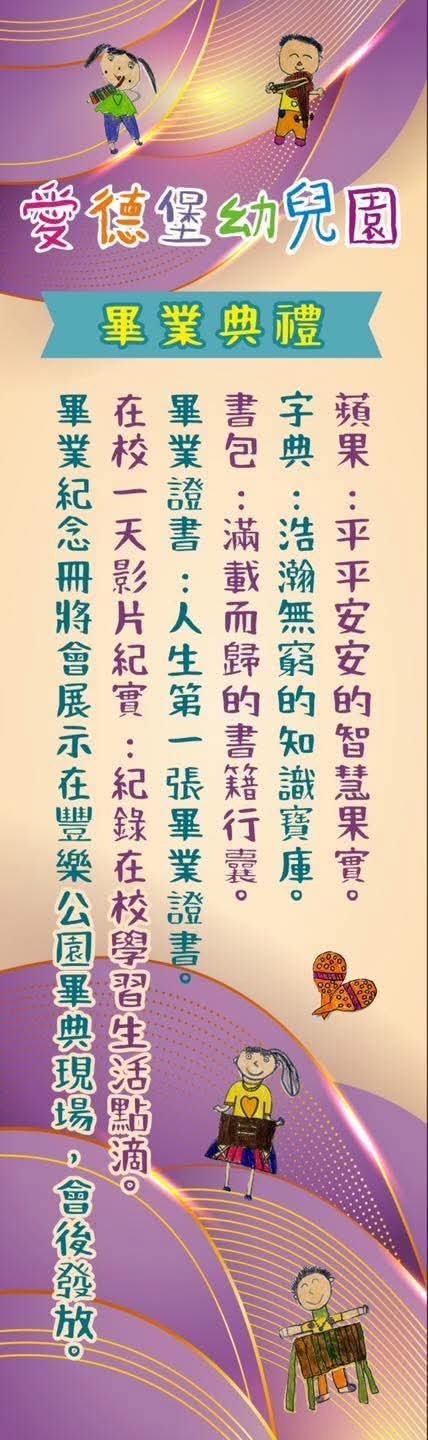 愛德堡幼兒園
畢業典禮
蘋果：平平安安的智慧果實。
字典：浩瀚無窮的知識寶庫。
書包：滿載而歸的書籍行囊。
畢業證書：人生第一張畢業證書。
在校一天影片紀實：紀錄在校學習生活點滴。
畢業紀念冊將會展示在豐樂公園畢典現場，會後發放。